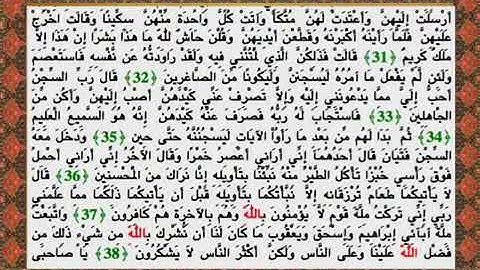 أَرْسَلَتْ إِلَيْهِنَّ وَأَعْتَدَتْ لَهُنَّ مُتَّكَأً وَآتَتْ كُلَّ وَاحِدَةٍ مِنْهُنَّ سِكِّينًا وَقَالَتِ اخْرُجْ
عَلَيْهِنَّ فَلَمَّا رَأَيْنَهُ أَكْبَرْنَهُ وَقَطَّعْنَ أَيْدِيَهُنَّ وَقُلْنَ حَاشَ لِلَّهِ مَا هَذَا بَشَرًا إِنْ هَذَا إِلَّا
مَلَكٌ كَرِيمٌ ﴿31﴾ قَالَتْ فَذَلِكُنَّ الَّذِي لُمْتُنَّنِي فِيهِ وَلَقَدْ رَاوَدْتُهُ عَنْ نَفْسِهِ فَاسْتَعْصَمَ
وَلَئِنْ لَمْ يَفْعَلْ مَا آمُرُهُ لَيُسْجَنَنَّ وَلَيَكُونًا مِنَ الصَّاغِرِينَ ﴿32﴾ قَالَ رَبِّ السِّجْنُ
أَحَبُّ إِلَيَّ مِمَّا يَدْعُونَنِي إِلَيْهِ وَإِلَّا تَصْرِفْ عَنِّي كَيْدَهُنَّ أَصْبُ إِلَيْهِنَّ وَأَكُنْ مِنَ
الْجَاهِلِينَ ﴿33﴾ فَاسْتَجَابَ لَهُ رَبُّهُ فَصَرَفَ عَنْهُ كَيْدَهُنَّ إِنَّهُ هُوَ السَّمِيعُ الْعَلِيمُ
﴿34﴾ ثُمَّ بَدَا لَهُمْ مِنْ بَعْدِ مَا رَأَوُا الْآيَاتِ لَيَسْجُنُنَّهُ حَتَّى حِينٍ ﴿35﴾ وَدَخَلَ مَعَهُ
السِّجْنَ فَتَيَانِ قَالَ أَحَدُهُمَا إِنِّي أَرَانِي أَعْصِرُ خَمْرًا وَقَالَ الْآخَرُ إِنِّي أَرَانِي أَحْمِلُ
فَوْقَ رَأْسِي خُبْزًا تَأْكُلُ الطَّيْرُ مِنْهُ نَبِّئْنَا بِتَأْوِيلِهِ إِنَّا نَرَاكَ مِنَ الْمُحْسِنِينَ ﴿36﴾ قَالَ
لَا يَأْتِيكُمَا طَعَامٌ تُرْزَقَانِهِ إِلَّا نَبَّأْتُكُمَا بِتَأْوِيلِهِ قَبْلَ أَنْ يَأْتِيَكُمَا ذَلِكُمَا مِمَّا عَلَّمَنِي
رَبِّي إِنِّي تَرَكْتُ مِلَّةَ قَوْمٍ لَا يُؤْمِنُونَ بِاللَّهِ وَهُمْ بِالْآخِرَةِ هُمْ كَافِرُونَ ﴿37﴾ وَاتَّبَعْتُ
مِلَّةَ آبَائِي إِبْرَاهِيمَ وَإِسْحَقَ وَيَعْقُوبَ مَا كَانَ لَنَا أَنْ نُشْرِكَ بِاللَّهِ مِنْ شَيْءٍ ذَلِكَ مِنْ
فَضْلِ اللَّهِ عَلَيْنَا وَعَلَى النَّاسِ وَلَكِنَّ أَكْثَرَ النَّاسِ لَا يَشْكُرُونَ ﴿38﴾ يَا صَاحِبَيِ